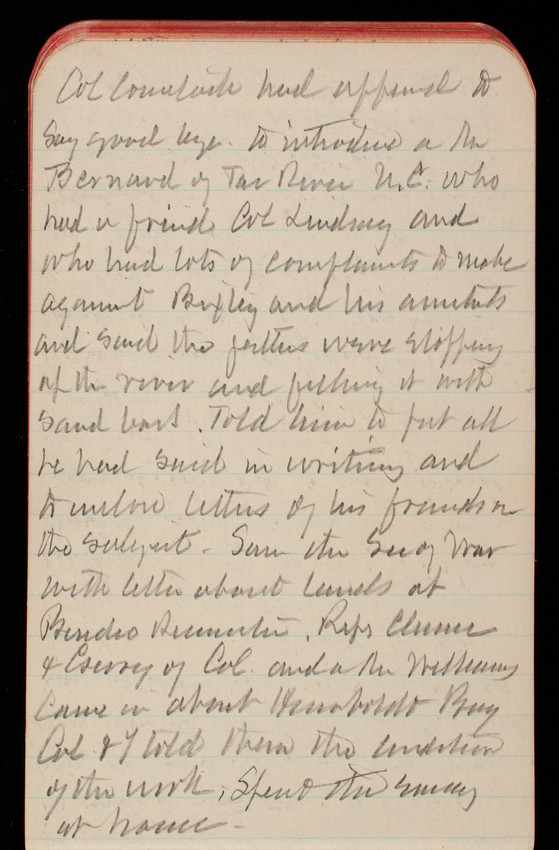 Col Comstock had appeared to
say good bye. to introduce a Mr
Bernard of Tar River N.C. who
had a friend Col Lindsay and
who had lots of complaints to make
against Bixby and his assistants
and said the jetties were stopping
up the river and filling it with
sand bars. Told him to put all
he had said in writing and
to enclose letters of his friends on
the subject. Saw the Sec of War
with letter about lands at
Benicia. Reps Clunie
& of Cal. and a Mr Williams
came in about Humboldt Bay
Cal & I told them the condition
of the work. Spent the evening
at home -